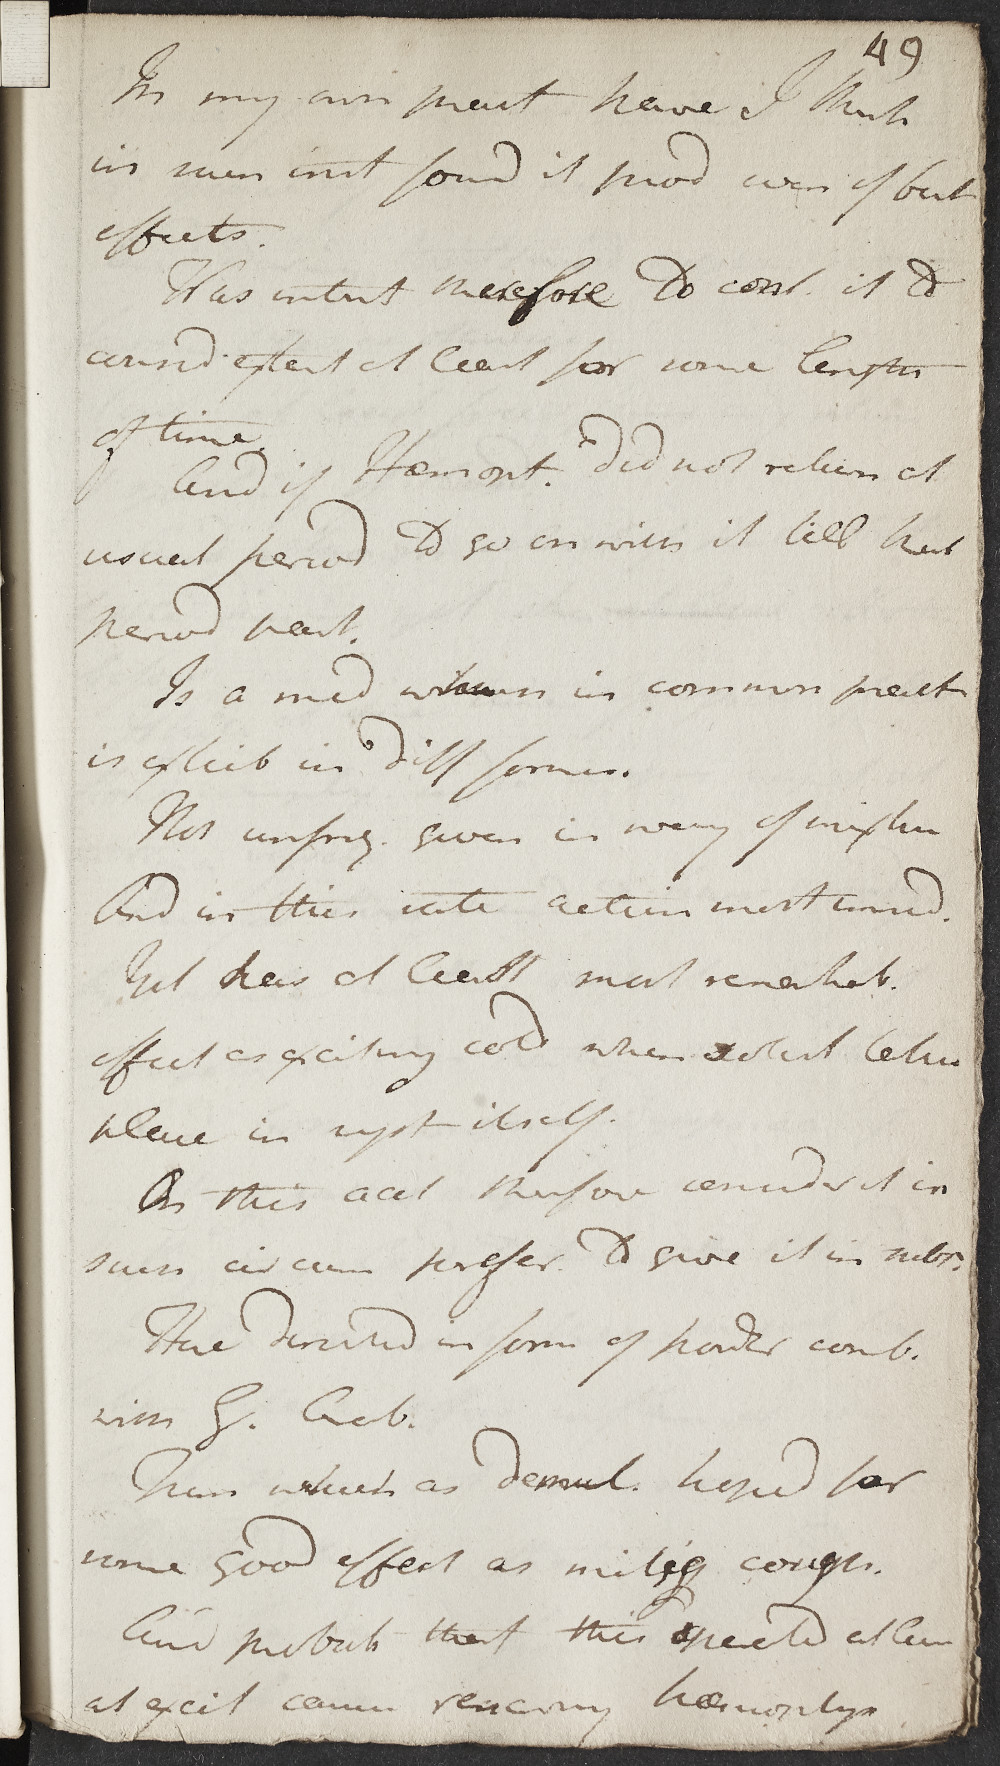 49
In my own pract have I think
in such inst found it prod even of best
effects.
Was intent therefore to cont. it to
consid extent at least for some length
of time.
And if Hæmopt. did not return at
usual period to go on with it till that
period past.
Is a med which in common pract
is exhib in diff forms.
Not unfreq. given in way of
And in this state action most
Yet has at least most remarkab.
effect as exciting cold when solut takes
place in syst itself.
On this acct therefore consider it in
such circum prefer. to give it in subst.
Have directed in form of powder comb.
with G. Arab.
From which as demul. hoped for
some good effect as mitig cough.
And probab that this operated at
at excit cause renewing hæmoptys